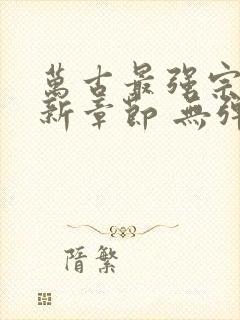 萬古最强宗
新章節 無彈
隋繁